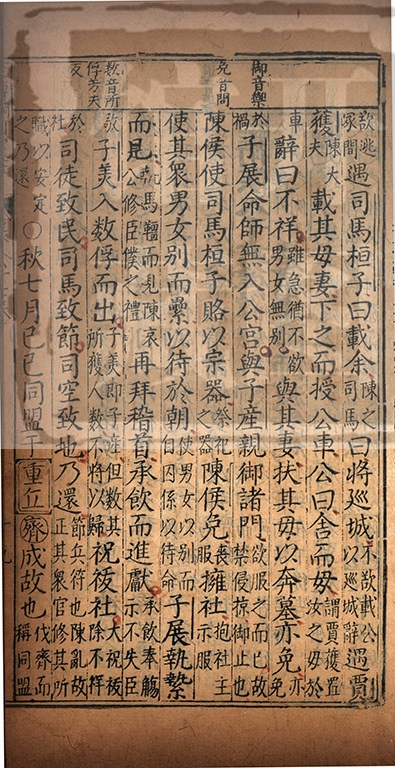 御音禦
免音問
數音所
俘芳夫
反
欲逃冢間遇司馬桓子曰載余陳之司馬曰將巡城不欲載公以巡城辭遇賈
獲陳大夫載其母妻下之而授公車公曰舍而母謂賈獲置汝之母於
車辭曰不祥雖急猶不欲男女無別與其妻扶其母以奔墓亦免亦免
於禍子展命師無入公宮與子產親御諸門欲服之而已故禁侵掠御止也
陳侯使司馬桓子賂以宗器祭祀之器陳侯免擁社喪服擁社抱社主示服
使其衆男女別而纍以待於朝使男女以別而自囚係以待命子展執縶
而見執馬縶而見陳哀公修臣僕之禮再拜稽首承飲而進獻承飲奉觴示不失臣
敬子美入數俘而出子美即子產但數其所獲人數不將以歸祝祓社大祝祓除不祥
於社司徒致民司馬致節司空致地乃還節兵符也陳亂故正其衆官修其所
職以安定之乃還○秋七月己巳同盟于重丘齊成故也伐齊而稱同盟